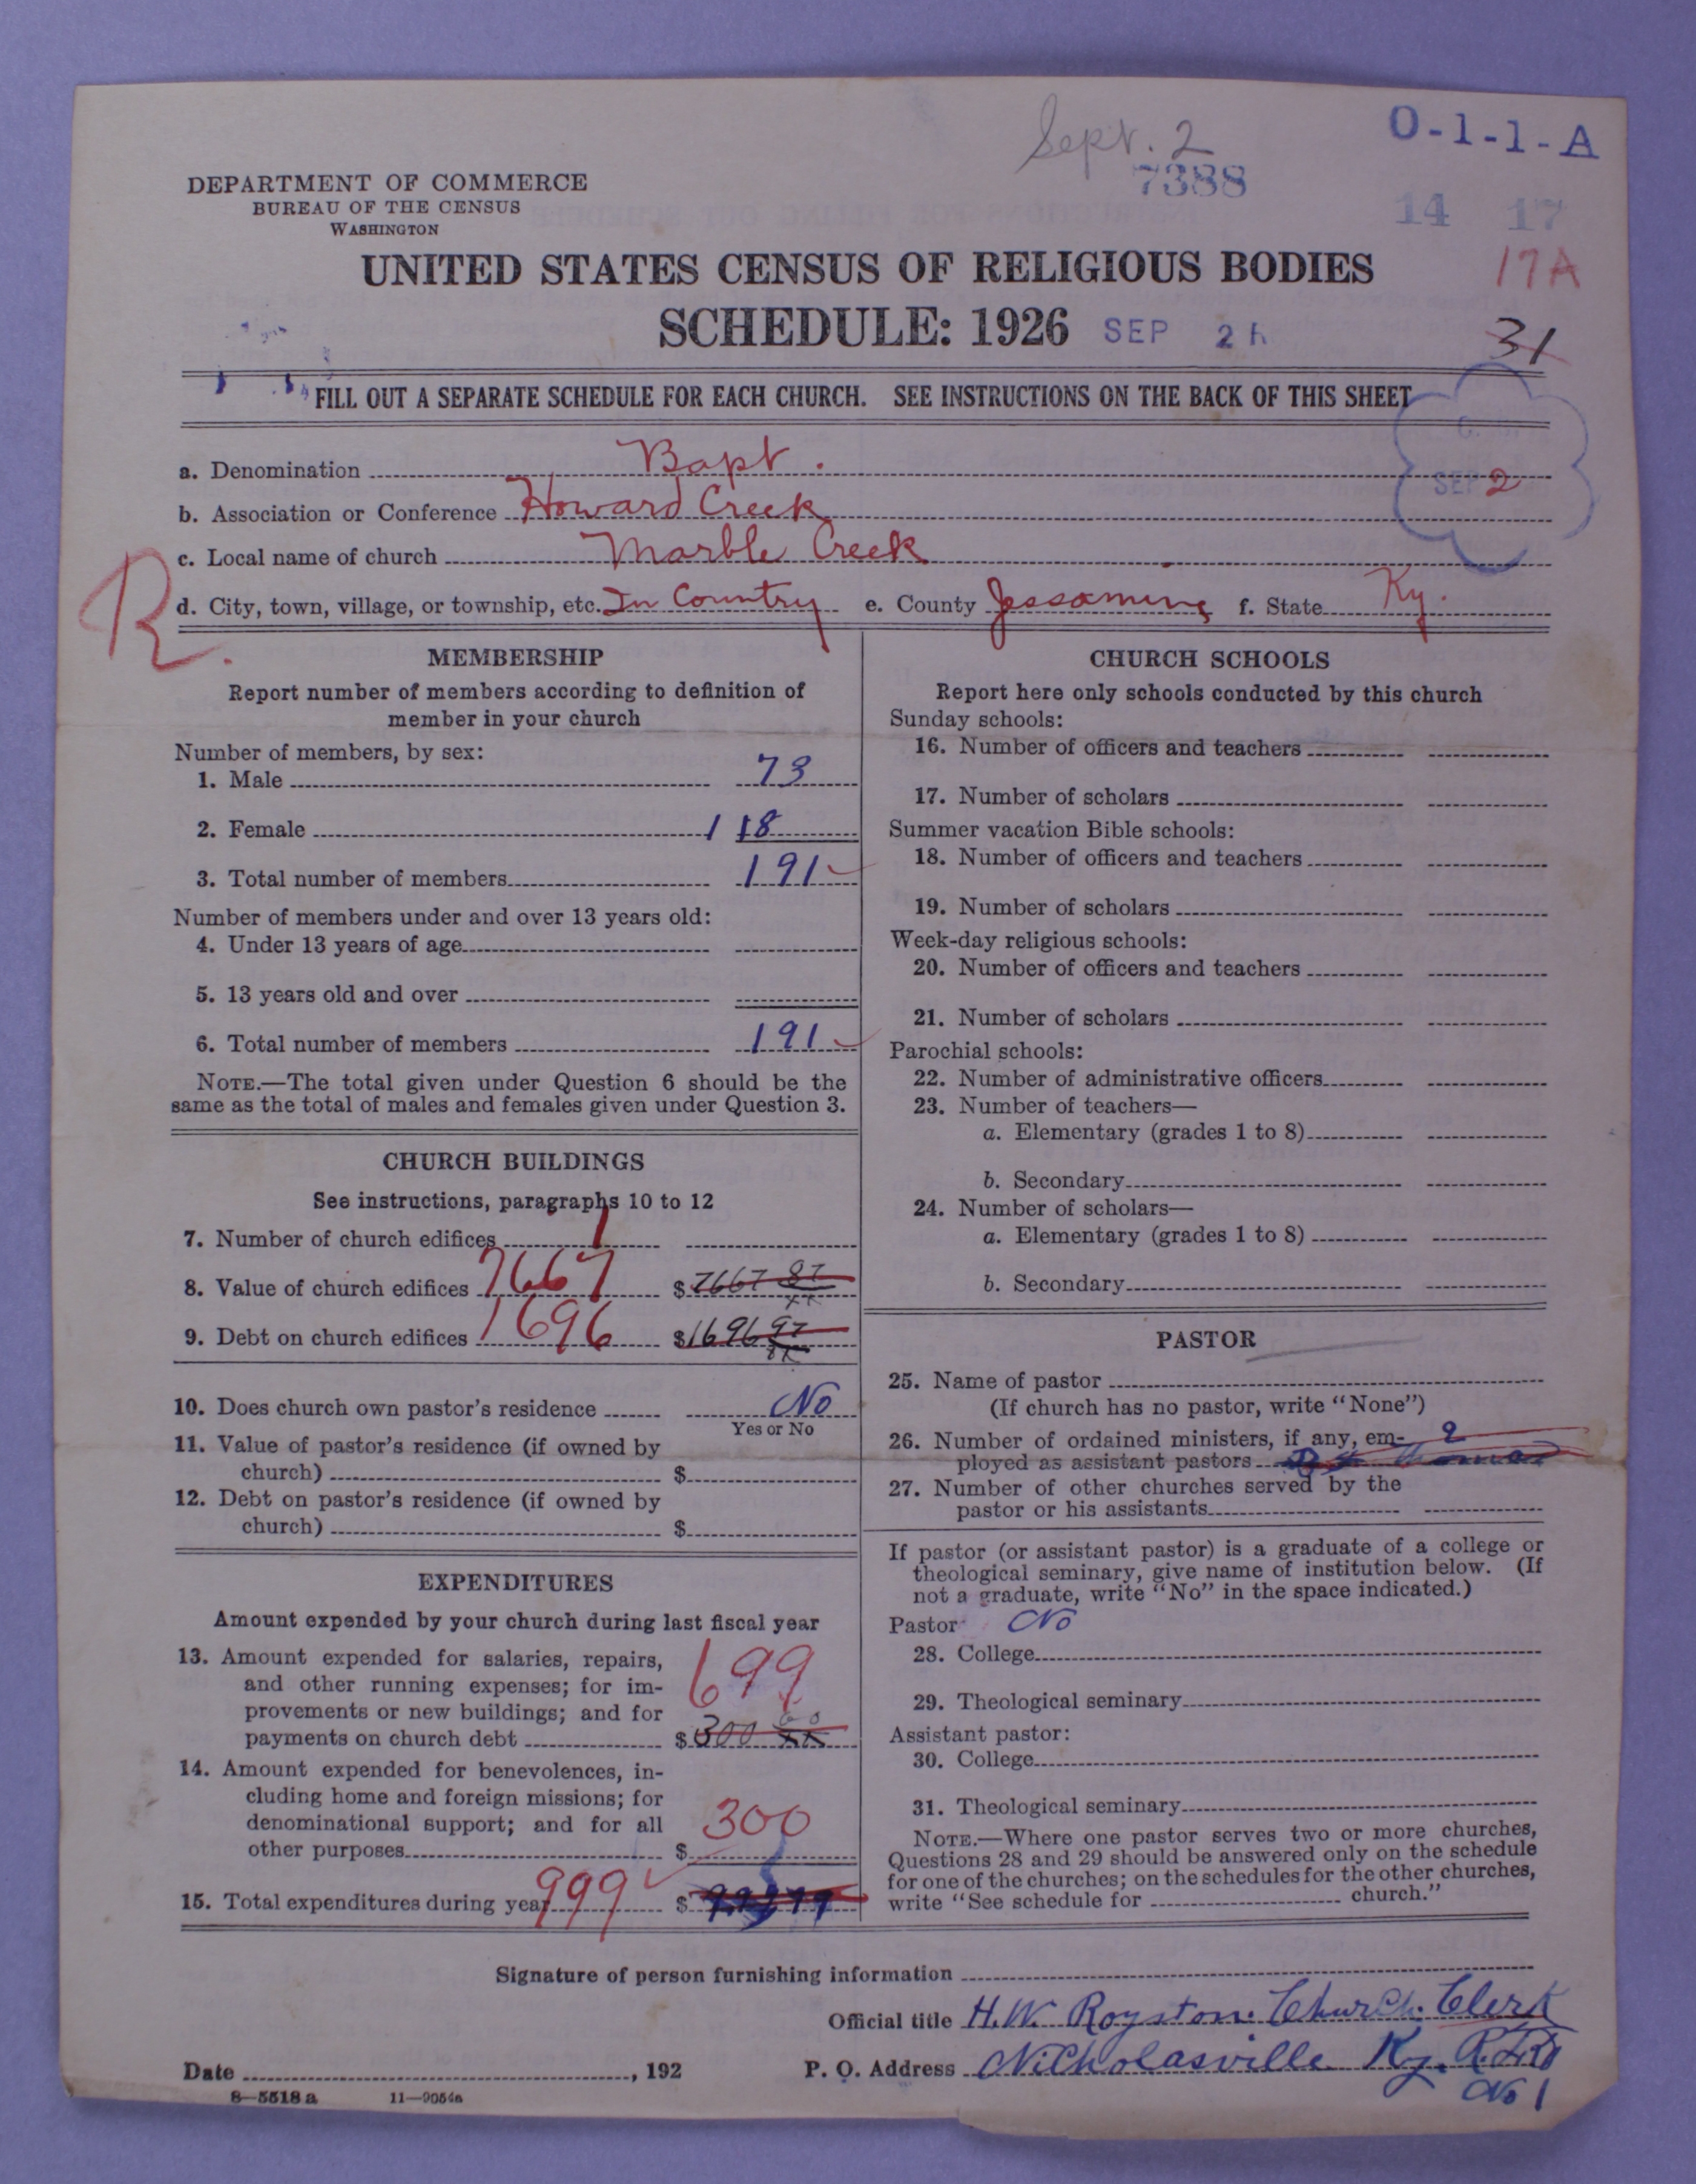 Sept. 2
O-1-1-A
7388
DEPARTMENT OF COMMERCE
BUREAU OF THE CENSUS
WASHINGTON
14 17
UNITED STATES CENSUS OF RELIGIOUS BODIES
17A
SCHEDULE: 1926
SEP 2
31
FILL OUT A SEPARATE SCHEDULE FOR EACH CHURCH. SEE INSTRUCTIONS ON THE BACK OF THIS SHEET
a. Denomination Bapt.
SEP 2
b. Association or Conference Howard Creek
c. Local name of church Marble Creek
R.
d. City, town, village, or township, etc. In Country e. County Jessamine f. State Ky.
MEMBERSHIP
Report number of members according to definition of
member in your church
Number of members, by sex:
1. Male 73
2. Female 118
3. Total number of members 191
Number of members under and over 13 years old:
4. Under 13 years of age
5. 13 years old and over
6. Total number of members 191
NOTE.—The total given under Question 6 should be the
same as the total of males and females given under Question 3.
CHURCH BUILDINGS
See instructions, paragraphs 10 to 12
7. Number of church edifices 1
8. Value of church edifices 7667 $ 7667 87
9. Debt on church edifices 1696 $ 1696 97
10. Does church own pastor's residence No
Yes or No
11. Value of pastor's residence (if owned by
church) $
12. Debt on pastor's residence (if owned by
church) $
EXPENDITURES
Amount expended by your church during last fiscal year
13. Amount expended for salaries, repairs,
and other running expenses; for im-
provements or new buildings; and for
payments on church debt $ 300
699
14. Amount expended for benevolences, in-
cluding home and foreign missions; for
denominational support; and for all
other purposes $
300
15. Total expenditures during year 999 $
CHURCH SCHOOLS
Report here only schools conducted by this church
Sunday schools:
16. Number of officers and teachers
17. Number of scholars
Summer vacation Bible schools:
18. Number of officers and teachers
19. Number of scholars
Week-day religious schools:
20. Number of officers and teachers
21. Number of scholars
Parochial schools:
22. Number of administrative officers
23. Number of teachers—
a. Elementary (grades 1 to 8)
b. Secondary
24. Number of scholars—
a. Elementary (grades 1 to 8)
b. Secondary
PASTOR
25. Name of pastor
(If church has no pastor, write "None")
26. Number of ordained ministers, if any, em-
ployed as assistant pastors
27. Number of other churches served by the
pastor or his assistants
If pastor (or assistant pastor) is a graduate of a college or
theological seminary, give name of institution below. (If
not a graduate, write "No" in the space indicated.)
Pastor No
28. College
29. Theological seminary
Assistant pastor:
30. College
31. Theological seminary
NOTE.—Where one pastor serves two or more churches,
Questions 28 and 29 should be answered only on the schedule
for one of the churches; on the schedules for the other churches,
write "See schedule for church."
Signature of person furnishing information
Official title H.W. Royston. Church. Clerk
Date , 192
P. O. Address Nicholasville Ky. R.F.D
No 1
8-5518 a 11-9054a